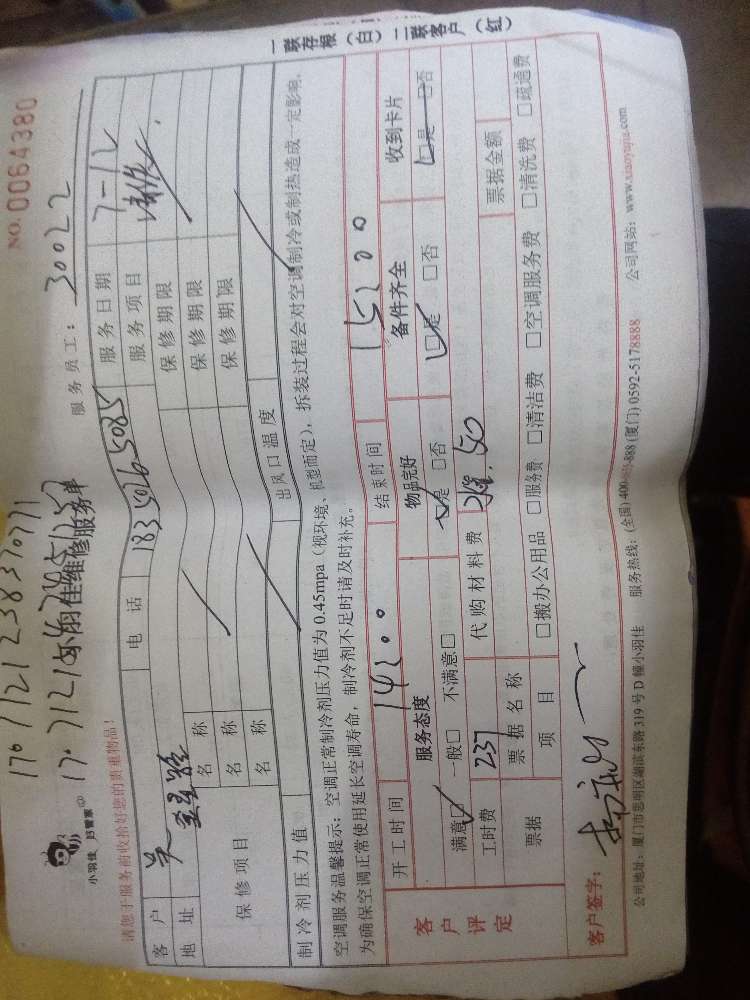 NO. 0064380
小羽佳 好管家
小羽佳维修服务单
服务员工： 30022
请您于服务前收拾好您的贵重物品！
客户 吴 电话 服务日期 7-12
地址 服务项目
保修项目 名称 保修期限
名称 保修期限
名称 保修期限
制冷剂压力值 出风口温度
空调服务温馨提示：空调正常制冷剂压力值为0.45mpa（视环境、机型而定），拆装过程会对空调制冷或制热造成一定影响，
为确保空调正常使用延长空调寿命，制冷剂不足时请及时补充。
开工时间 结束时间
客户评定 服务态度 物品完好 备件齐全 收到卡片
满意□ 一般□ 不满意□ □是 □否 □是 □否 □是 □否
工时费 237 代购材料费
票据 票据名称 票据金额
项目 □搬办公用品 □服务费 □清洁费 □空调服务费 □清洗费 □疏通费
客户签字：
公司地址：厦门市思明区湖滨东路319号D幢小羽佳 服务热线：(全国)400- -888 (厦门) 0592-5178888 公司网站：www.xiaoyujia.com
一联存根（白）二联客户（红）